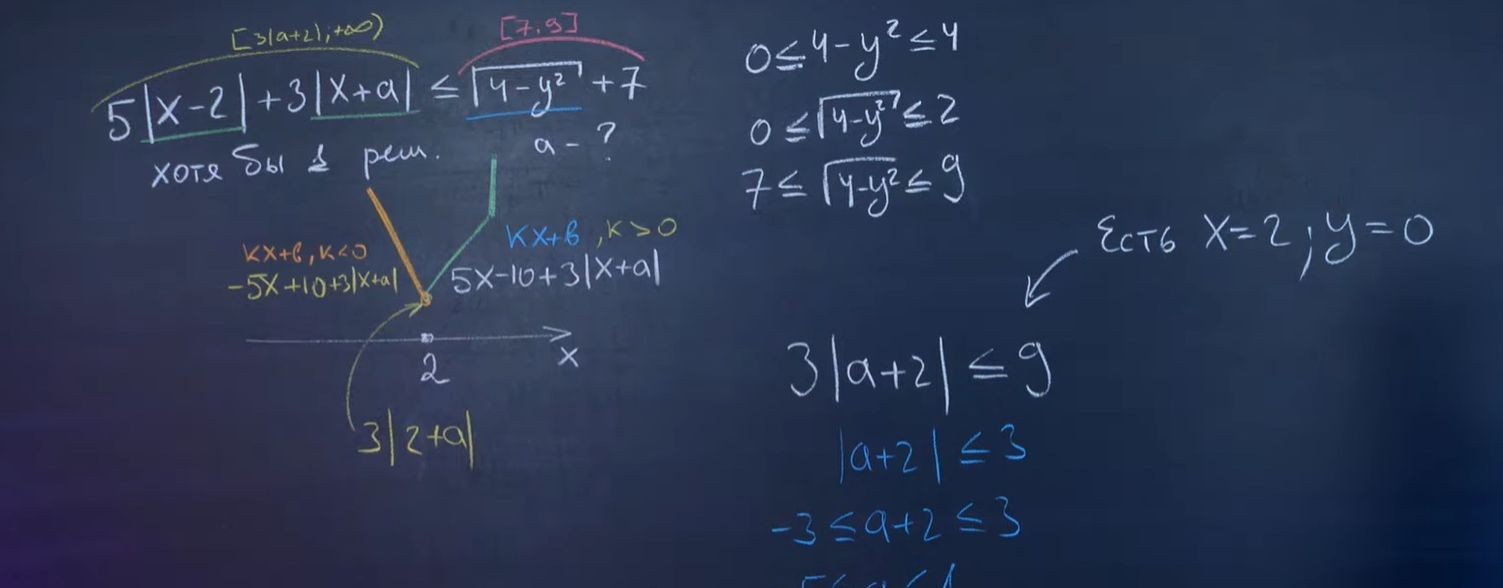 [3|a+2|;+∞)
[7;9]
5|x-2|+3|x+a| ≤ √4-y² +7
хотя бы 1 реш. a - ?
kx+b, k<0
-5x+10+3|x+a|
kx+b, k>0
5x-10+3|x+a|
2
x
3|2+a|
0≤4-y²≤4
0≤√4-y²≤2
7≤√4-y²≤9
Есть x=2; y=0
3|a+2|≤9
|a+2|≤3
-3≤a+2≤3